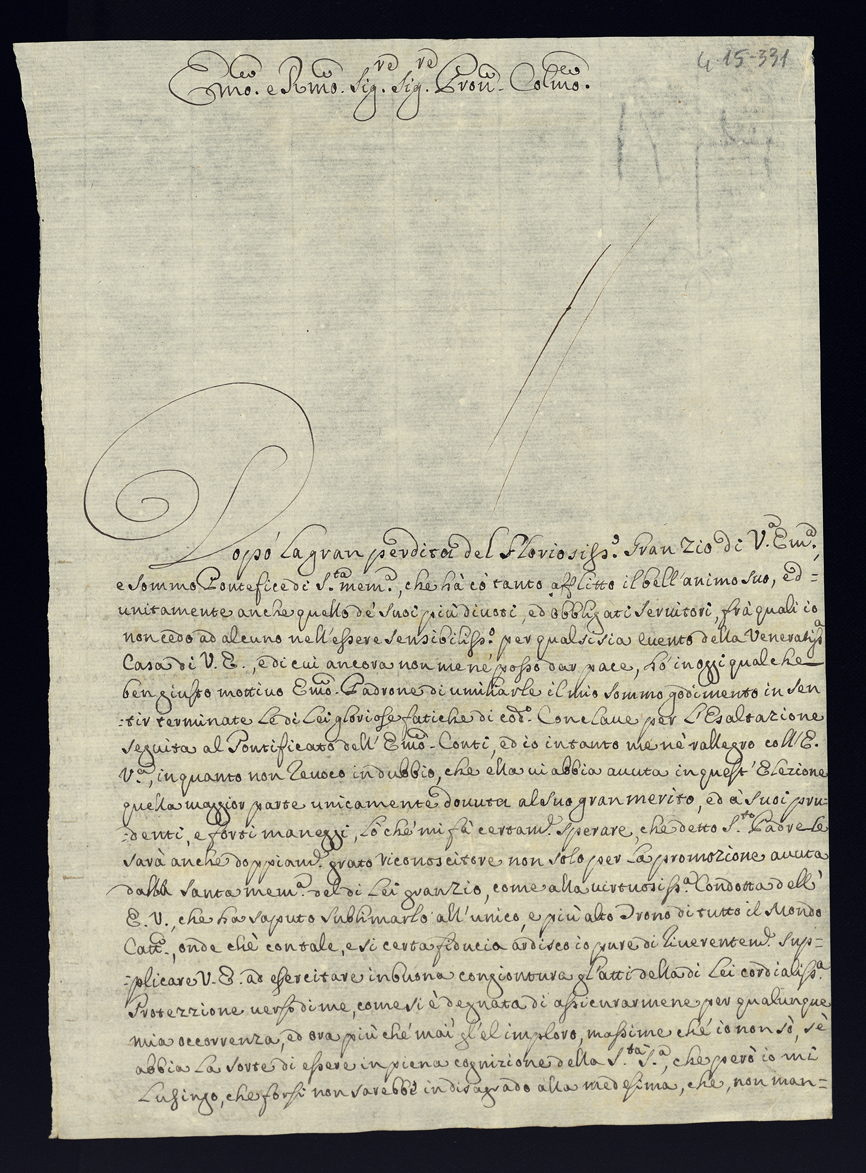 4-15-331
Emo. e Rmo. Sig.re Sig.re Pron. Colmo.
Dopò la gran perdita del Gloriosiss.o Gran Zio di V.a Em.a,
e Sommo Pontefice di S.ta mem.a, che hà cò tanto afflitto il bell'animo suo, ed=
unitamente anche quello de' suoi più divoti, ed obbligati servitori, frà quali io
non cedo ad alcuno nell'essere sensibiliss.o per qual si sia evento della Veneratiss.a
Casa di V. E., e di cui ancora non me nè posso dar pace, hò in oggi qualche
ben giusto mottivo Emo. Padrone di umiliarle il mio sommo godimento in sen
=tir terminate le di Lei gloriose fatiche di cod.o Conclave per l'Esaltazione
seguita al Pontificato dell'Emo. Conti, ed io intanto me nè rallegro coll'E.
V.a, in quanto non revoco in dubbio, che ella vi abbia avuta in quest'Elezione
quella maggior parte unicamente dovuta al suo gran merito, ed à suoi pru=
=denti, e forti maneggi, lo chè mi fà certam.e sperare, che detto S.to Padre le
sarà anche doppiam.e grato riconoscitore non solo per la promozione avuta
dalla Santa mem.a del di Lei gran zio, come alla virtuosiss.a Condotta dell'
E. V., che ha saputo sublimarlo all'unico, e più alto Trono di tutto il Mondo
Catt.o, onde chè con tale, e si certa fiducia ardisco io pure di riverentem.e sup=
=plicare V. E. ad esercitare in buona congiontura gl'atti della di Lei cordialiss.a
Protezzione verso di me, come si è degnata di assicurarmene per qualunque
mia occorrenza, ed ora più chè mai gl'el imploro, massime chè io non sò, sè
abbia la sorte di essere in piena cognizione della S.tà S.a, che però io mi
Lusingo, che forsi non sarebbe in disagrado alla medesima, che, non man=